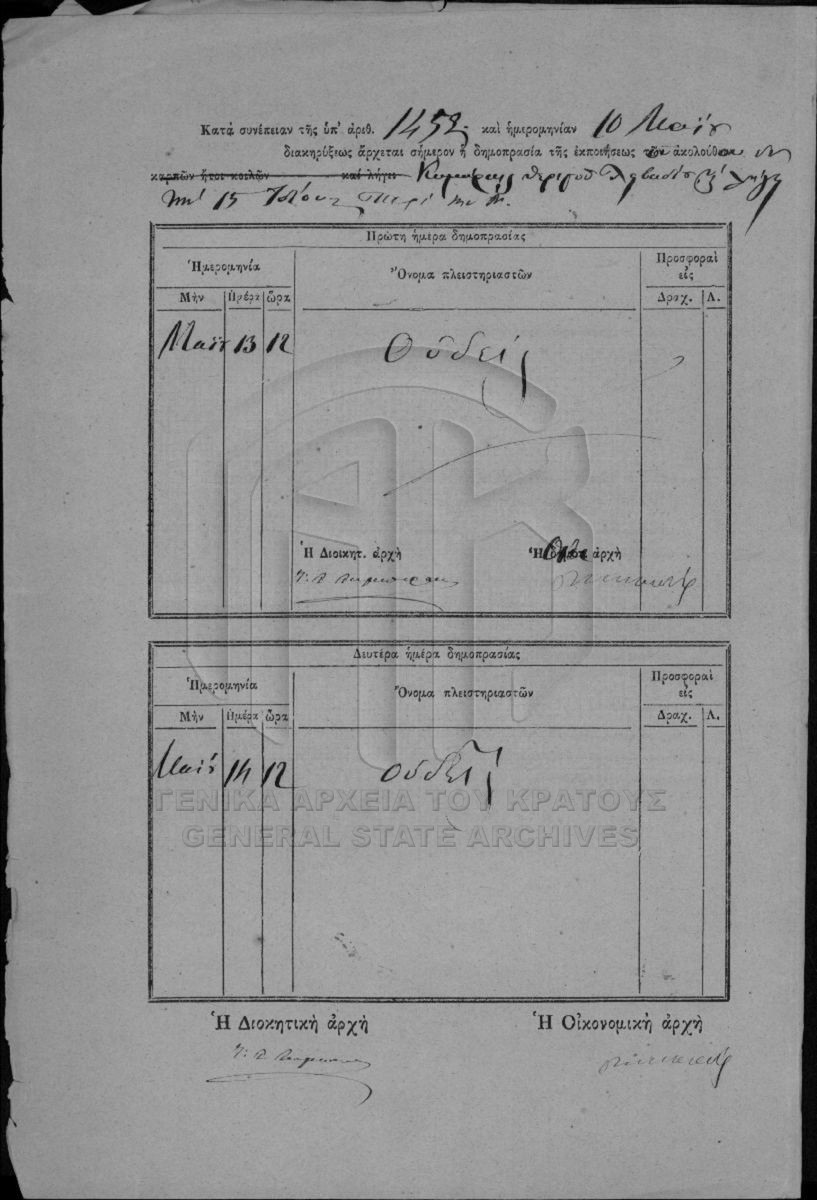 Κατὰ συνέπειαν τῆς ὑπ' ἀρεθ. 1452. καὶ ἡμερομηνίαν 10 Μαΐου
διακηρύξεως ἄρχεται σήμερον ἡ δημοπρασία τῆς ἐκποιήσεως τῶν ἀκολούθων
καρπῶν ἤτοι κοιλῶν καὶ λήγει
15
Πρώτη ἡμέρα δημοπρασίας
Ἡμερομηνία
Ὄνομα πλειστηριαστῶν
Προσφοραὶ
εἰς
Μὴν Ἡμέρα ὥρα
Δραχ. Λ.
Μαΐου 13 12 Οὐδείς
Ἡ Διοικητ. ἀρχὴ
Ἡ ἀρχὴ
Δευτέρα ἡμέρα δημοπρασίας
Ἡμερομηνία
Ὄνομα πλειστηριαστῶν
Προσφοραὶ
εἰς
Μὴν Ἡμέρα ὥρα
Δραχ. Λ.
Μαΐου 14 12 οὐδείς
ΓΕΝΙΚΑ ΑΡΧΕΙΑ ΤΟΥ ΚΡΑΤΟΥΣ
GENERAL STATE ARCHIVES
Ἡ Διοκητικὴ ἀρχὴ
Ἡ Οἰκονομικὴ ἀρχὴ